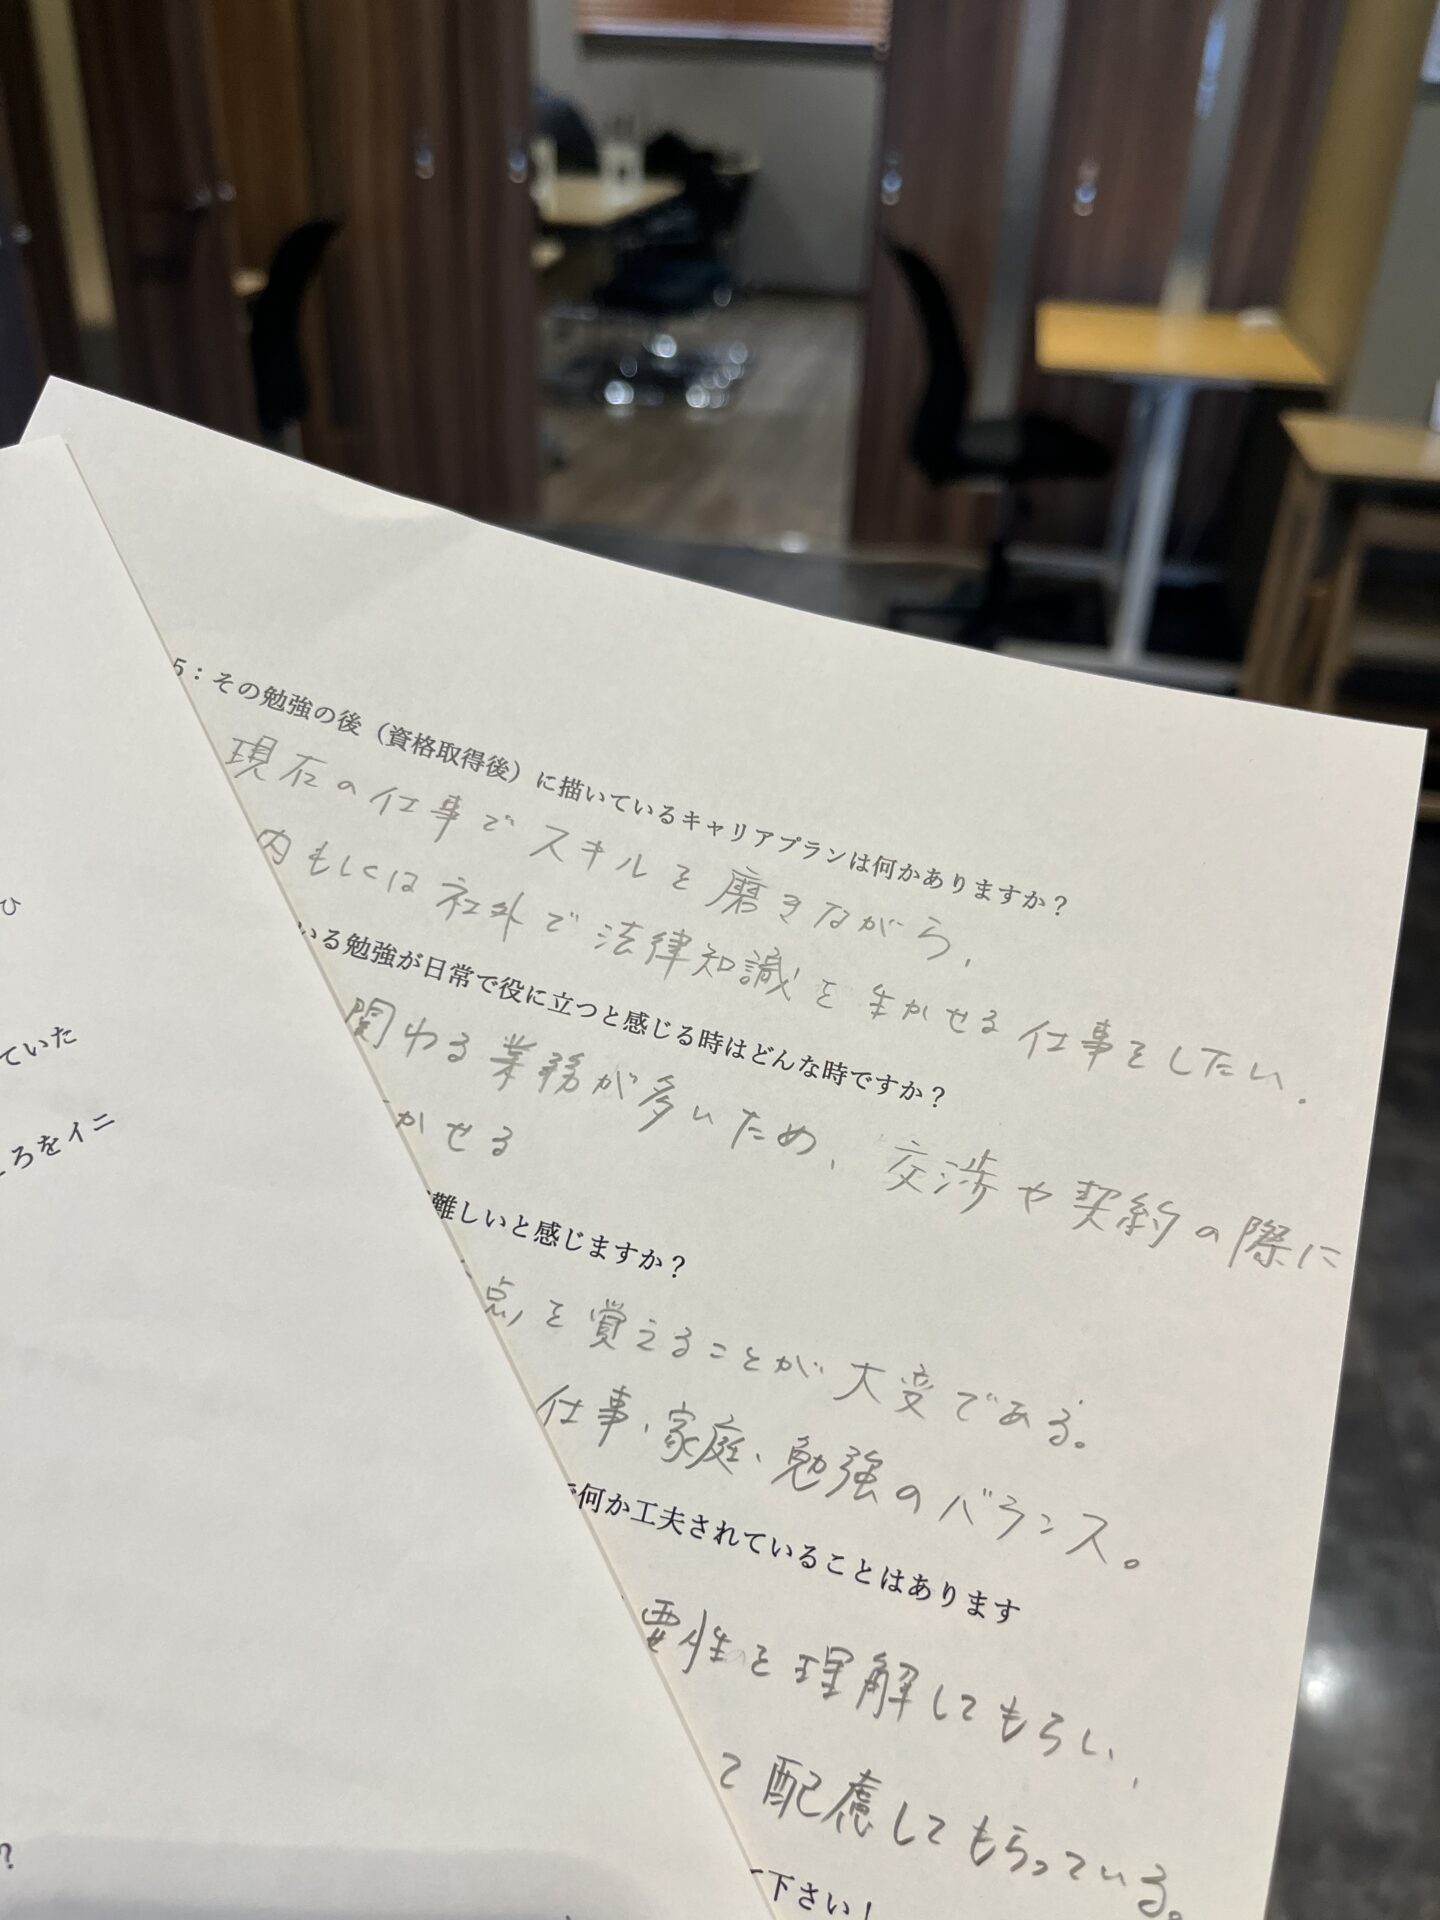 ひ
ていた
ころをイニ
?
5:その勉強の後(資格取得後)に描いているキャリアプランは何かありますか?
現在の仕事でスキルを磨きながら、
内もしくは社外で法律知識を生かせる仕事をしたい。
いる勉強が日常で役に立つと感じる時はどんな時ですか?
関わる業務が多いため、交渉や契約の際に
かせる
難しいと感じますか?
点を覚えることが大変である。
仕事、家庭、勉強のバランス。
で何か工夫されていることはあります
要性を理解してもらい、
て配慮してもらっている。
下さい!